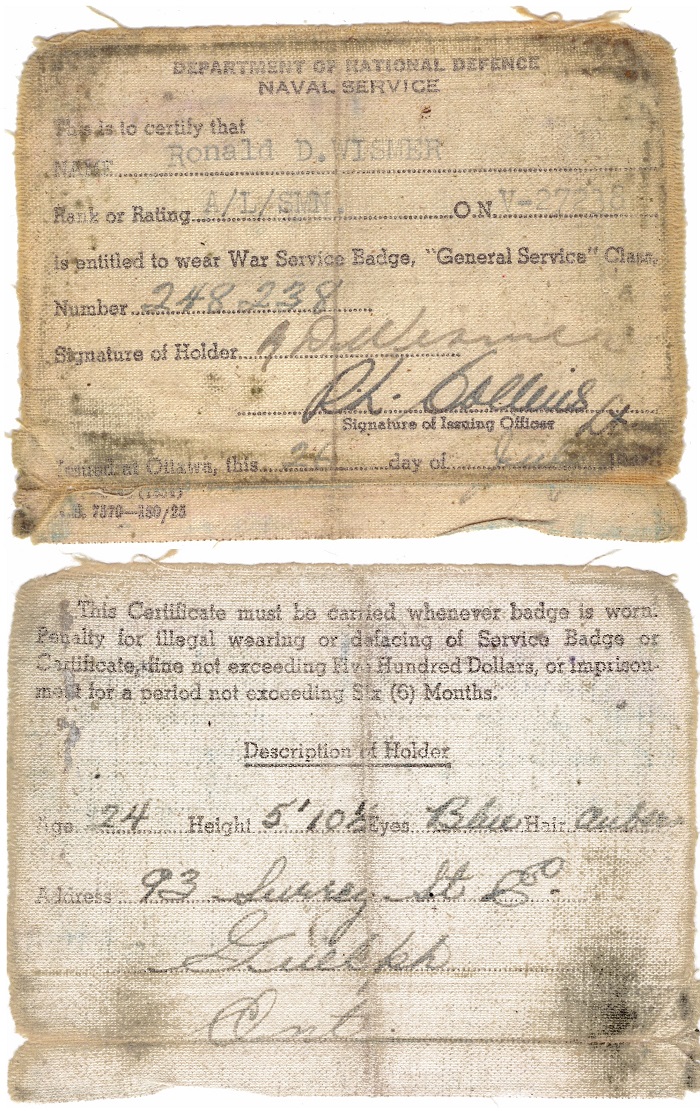 DEPARTMENT OF NATIONAL DEFENCE
NAVAL SERVICE
This is to certify that
NAME Ronald D. WISMER
Rank or Rating A/L/SMN. O.N. V-27238
is entitled to wear War Service Badge, "General Service" Class,
Number 248238
Signature of Holder R D Wismer
P.L. Collins
Signature of Issuing Officer Lt
Issued at Ottawa, this 24 day of
7570—250/25
This Certificate must be carried whenever badge is worn.
Penalty for illegal wearing or defacing of Service Badge or
Certificate, fine not exceeding Five Hundred Dollars, or Imprison-
ment for a period not exceeding Six (6) Months.
Description of Holder
Age 24 Height 5'10½ Eyes Blue Hair Auburn
Address 93 Surrey St E
Guelph
Ont.